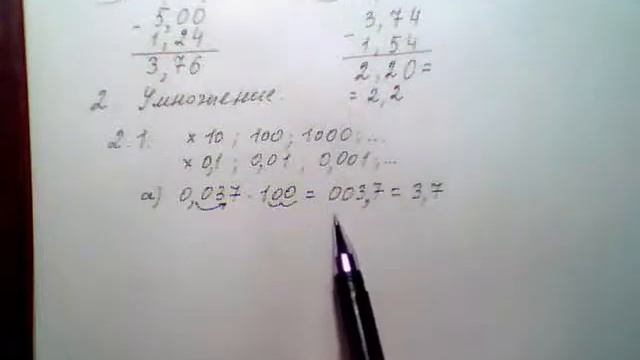 5,00
- 1,24
3,76
3,74
- 1,54
2,20 =
= 2,2
2 Умножение.
2.1. × 10 ; 100 ; 1000 ; ...
× 0,1 ; 0,01 , 0,001 ; ...
а) 0,037 · 100 = 003,7 = 3,7